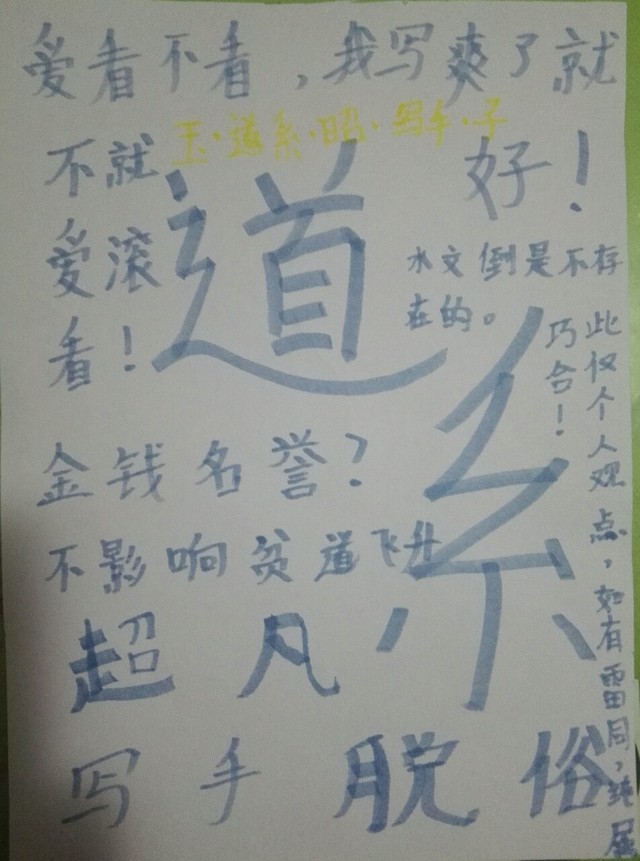 爱看不看，我写爽了就
好！
不就
爱滚
看！
玉·道系·昭·写手·子
道系
水文倒是不存
在的。
金钱名誉？
不影响贫道飞升
超凡
写手脱俗
此仅个人观点，如有雷同，纯属
巧合！